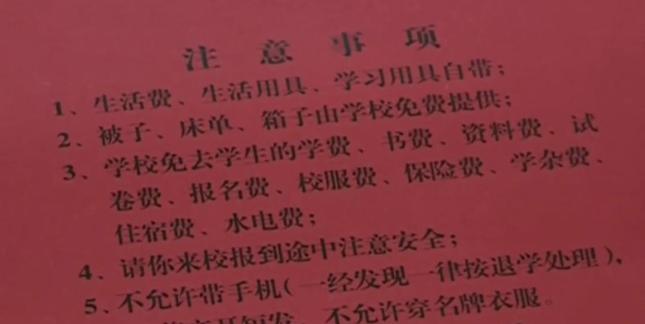 注意事项
1、生活费、生活用具、学习用具自带；
2、被子、床单、箱子由学校免费提供；
3、学校免去学生的学费、书费、资料费、试
卷费、报名费、校服费、保险费、学杂费、
住宿费、水电费；
4、请你来校报到途中注意安全；
5、不允许带手机(一经发现一律按退学处理)，
短发，不允许穿名牌衣服。